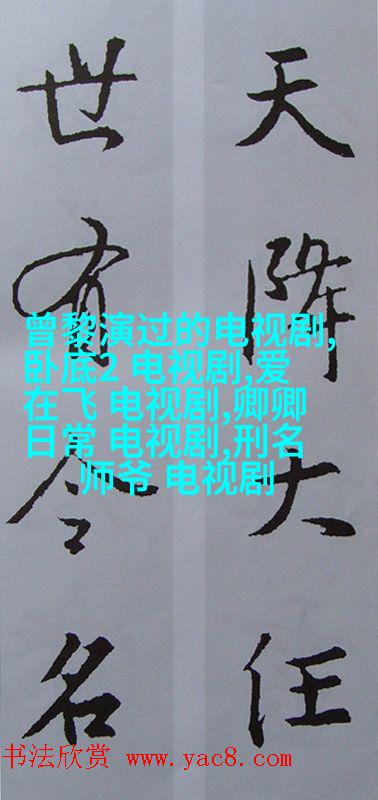 天降大任
世有令名
曾黎演过的电视剧,
卧底2 电视剧,爱
在飞 电视剧,卿卿
日常 电视剧,刑名
师爷 电视剧
书法欣赏 www.yac8.com